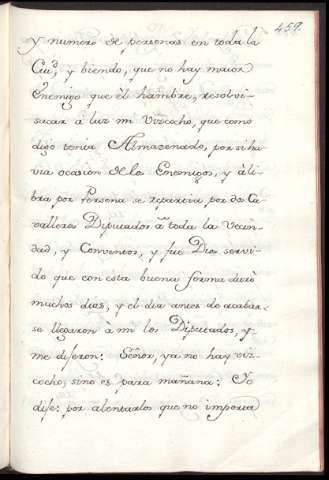 459.
y numero de personas en toda la
Ciu.d, y biendo, que no hay maior
Enemigo que èl hambre, resolvi-
sacar à luz mi Vizcocho, que como
digo tenia Almazenado, por si ha
via ocasion de los Enemigos, y à li
bra por Persona se repartia, por dos Ca-
valleros Diputados à toda la Vecin-
dad, y Conventos, y fue Dios servi-
do que con esta buena forma durò
muchos dias, y el dia antes de acabar-
se llegaron à mi los Diputados, y-
me dijeron: Señor, ya no hay viz-
cocho, sino es para mañana: Yo
dije: por alentarlos que no importa